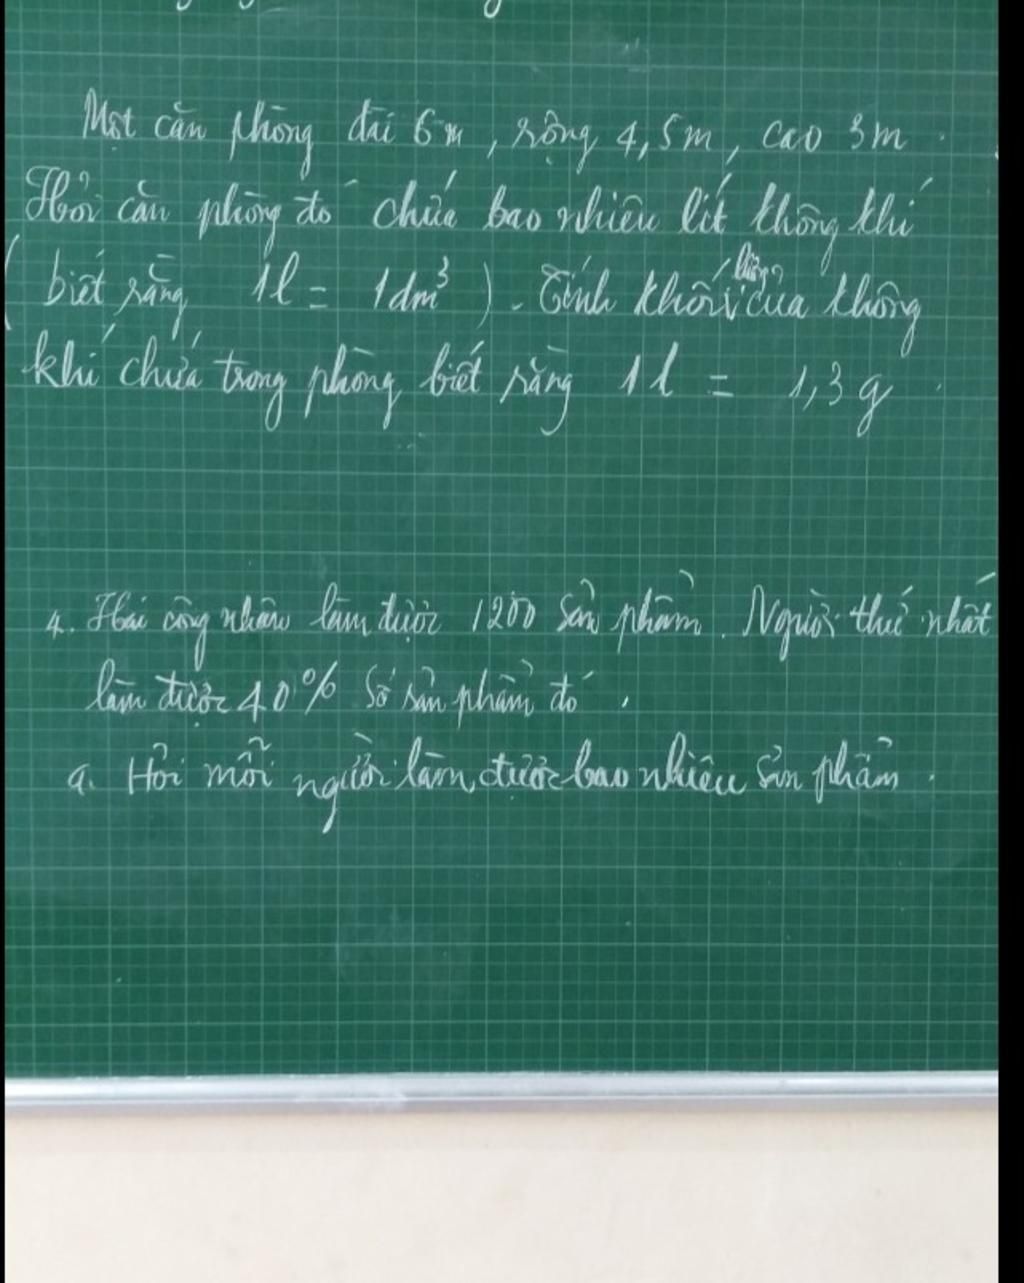 Một căn phòng dài 6m, rộng 4,5m, cao 3m.
Hỏi căn phòng đó chứa bao nhiêu lít không khí
(biết rằng 1l = 1dm³). Tính khối lượng của không
khí chứa trong phòng biết rằng 1l = 1,3g.
4. Hai công nhân làm được 1200 sản phẩm. Người thứ nhất
làm được 40% số sản phẩm đó.
a. Hỏi mỗi người làm được bao nhiêu sản phẩm.